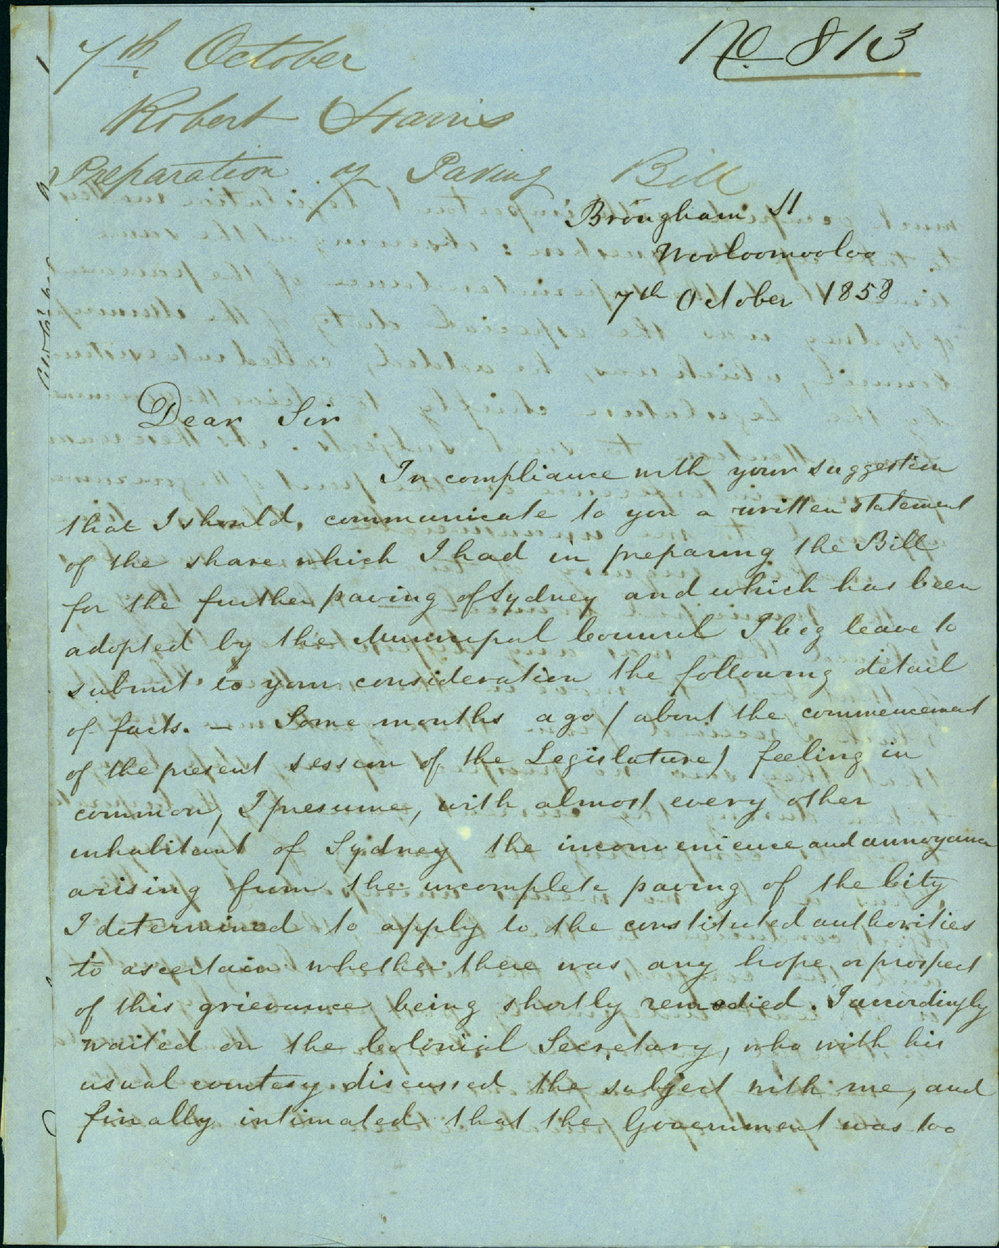 No. 813
7th. October
Robert Harris
Preparation of Paving Bill
Brougham St
Wooloomooloo
7th October 1858
Dear Sir
In compliance with your suggestion
that I should, communicate to you a written statement
of the share which I had in preparing the Bill
for the further paving of Sydney and which has been
adopted by the Municipal Council I beg leave to
submit to your consideration the following detail
of facts. — Some months ago / about the commencement
of the present session of the Legislature / feeling in
common, I presume, with almost every other
inhabitant of Sydney the inconvenience and annoyance
arising from the incomplete paving of the City,
I determined to apply to the constituted authorities
to ascertain whether there was any hope or prospect
of this grievance being shortly remedied. I accordingly
waited on the Colonial Secretary, who with his
usual courtesy discussed the subject with me, and
finally intimated that the Government was too